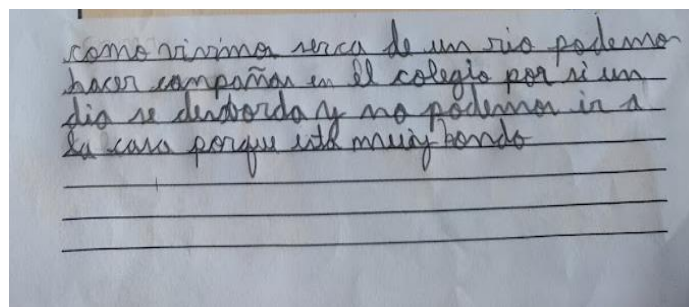 como vivimos serca de un rio podemos
hacer campañas en él colegio por si un
dia se desborda y no podemos ir a
la casa porque está muy hondo